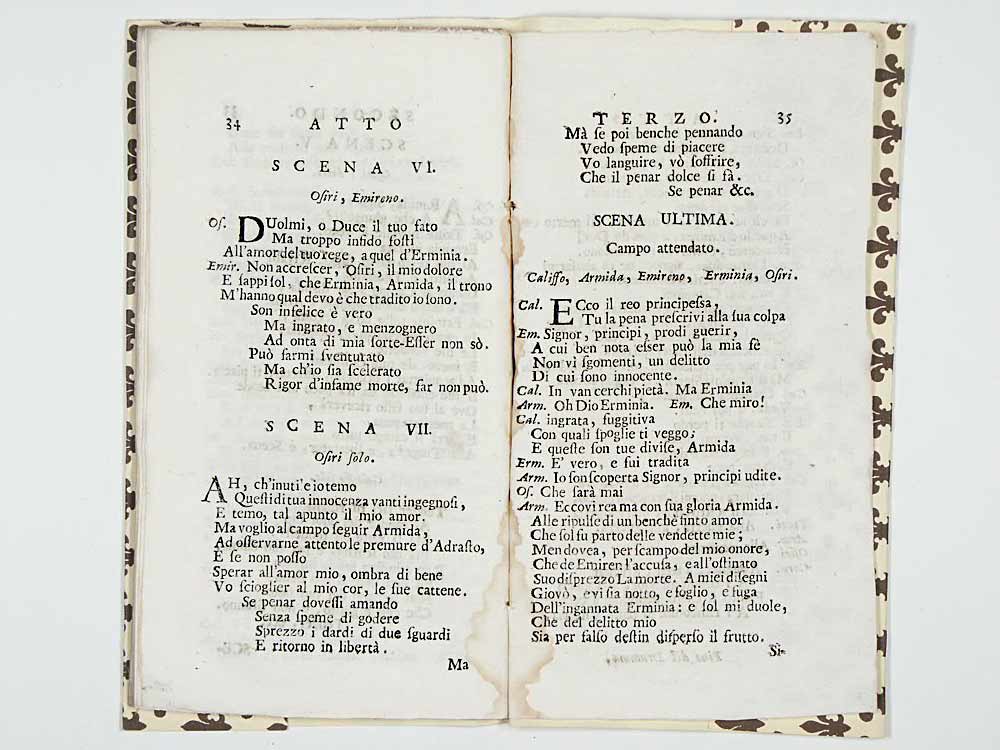 34 ATTO
SCENA VI.
Oſiri, Emireno.
Oſ. DUolmi, o Duce il tuo fato
Ma troppo infido foſti
All'amor del tuo rege, a quel d'Erminia.
Emir. Non accreſcer, Oſiri, il mio dolore
E ſappi ſol, che Erminia, Armida, il trono
M'hanno qual devo è che tradito io ſono.
Son infelice è vero
Ma ingrato, e menzognero
Ad onta di mia ſorte-Eſſer non sò.
Può farmi ſventurato
Ma ch'io ſia ſcelerato
Rigor d'infame morte, far non può.
SCENA VII.
Oſiri ſolo.
AH, ch'inuti'e io temo
Queſti di tua innocenza vanti ingegnoſi,
E temo, tal apunto il mio amor.
Ma voglio al campo ſeguir Armida,
Ad oſſervarne attento le premure d'Adraſto,
E ſe non poſſo
Sperar all'amor mio, ombra di bene
Vo ſcioglier al mio cor, le ſue cattene.
Se penar doveſſi amando
Senza ſpeme di godere
Sprezzo i dardi di due ſguardi
E ritorno in libertà.
Ma
TERZO. 35
Mà ſe poi benche pennando
Vedo ſpeme di piacere
Vo languire, vò ſoffrire,
Che il penar dolce ſi fà.
Se penar &c.
SCENA ULTIMA.
Campo attendato.
Califfo, Armida, Emireno, Erminia, Oſiri.
Cal. ECco il reo principeſſa,
Tu la pena preſcrivi alla ſua colpa
Em. Signor, principi, prodi guerir,
A cui ben nota eſſer può la mia fè
Non vi ſgomenti, un delitto
Di cui ſono innocente.
Cal. In van cerchi pietà. Ma Erminia
Arm. Oh Dio Erminia. Em. Che miro!
Cal. ingrata, fuggitiva
Con quali ſpoglie ti veggo;
E queſte ſon tue diviſe, Armida
Erm. E' vero, e fui tradita
Arm. Io ſon ſcoperta Signor, principi udite.
Oſ. Che ſarà mai
Arm. Eccovi rea ma con ſua gloria Armida.
Alle ripulſe di un benchè finto amor
Che ſol fu parto delle vendette mie;
Men dovea, per ſcampo del mio onore,
Che de Emiren l'accuſa, e all'oſtinato
Suo diſprezzo La morte. A miei diſegni
Giovò, e vi ſia notto, e foglio, e fuga
Dell'ingannata Erminia: e ſol mi duole,
Che del delitto mio
Sia per falſo deſtin diſperſo il frutto.
Si-